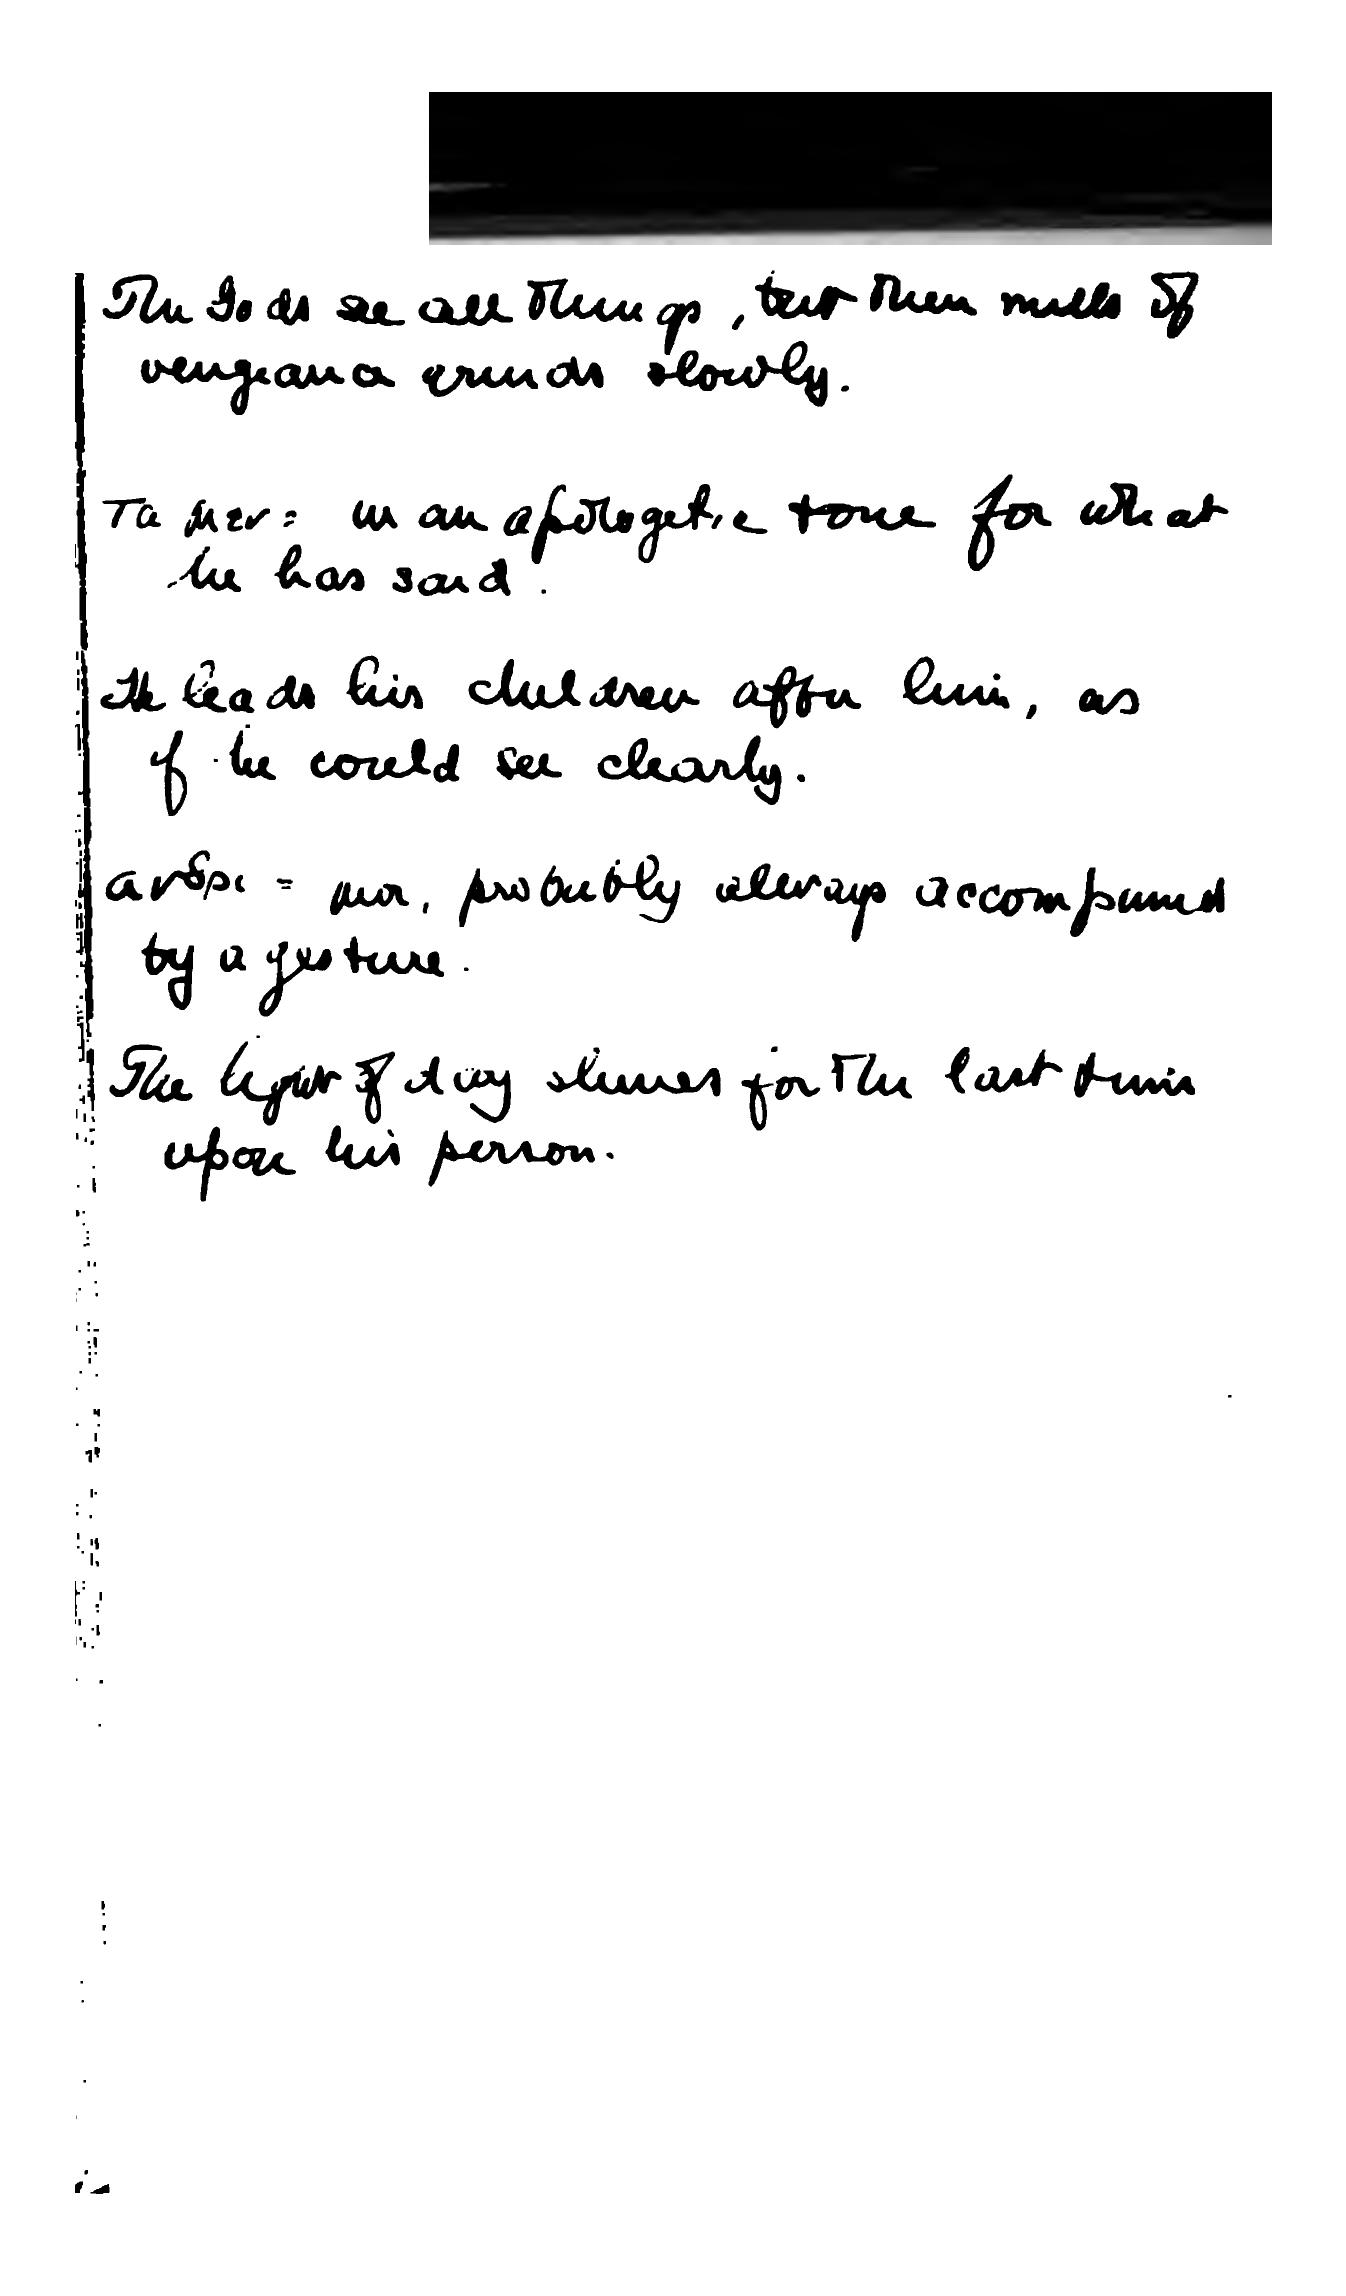 The Gods see all things, but their mills of
vengeance grinds slowly.
τα μεν = in an apologetic tone for what
he has said.
He leads his children after him, as
if he could see clearly.
ανδρι = moi, probably always accompanied
by a gesture.
The light of day shines for the last time
upon his person.